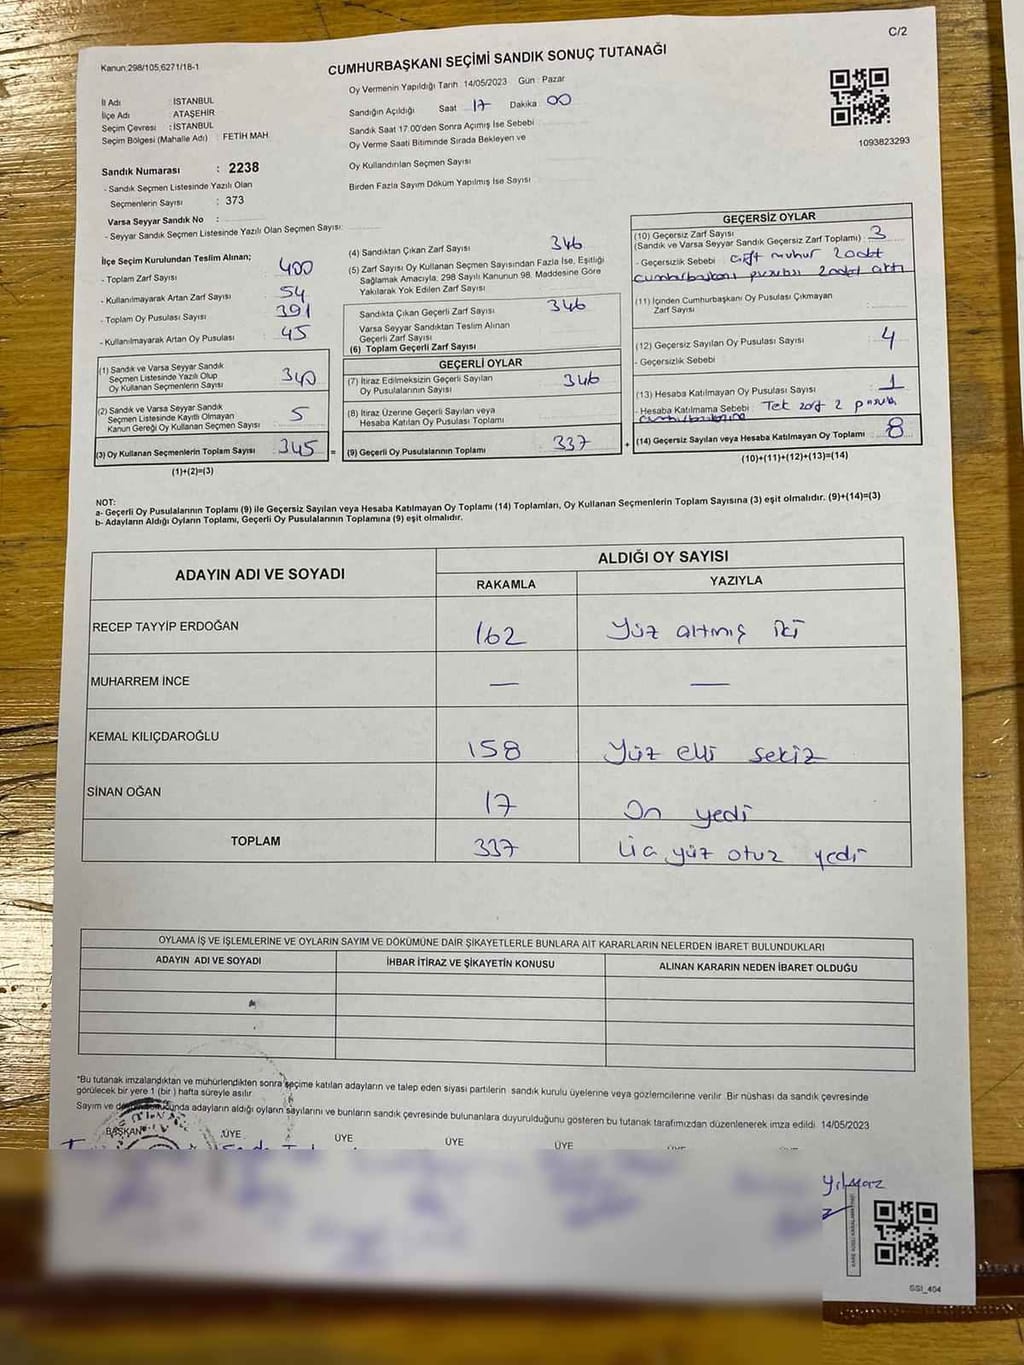 C/2
Kanun:298/105,6271/18-1
CUMHURBAŞKANI SEÇİMİ SANDIK SONUÇ TUTANAĞI
Oy Vermenin Yapıldığı Tarih :14/05/2023 Gün : Pazar
İl Adı : İSTANBUL
İlçe Adı : ATAŞEHİR
Seçim Çevresi : İSTANBUL
Seçim Bölgesi (Mahalle Adı) : FETİH MAH
Sandığın Açıldığı Saat 17 Dakika 00
Sandık Saat 17.00'den Sonra Açımış İse Sebebi
Oy Verme Saati Bitiminde Sırada Bekleyen ve
Oy Kullandırılan Seçmen Sayısı
Birden Fazla Sayım Döküm Yapılmış İse Sayısı
1093823293
Sandık Numarası : 2238
- Sandık Seçmen Listesinde Yazılı Olan
Seçmenlerin Sayısı : 373
Varsa Seyyar Sandık No :
- Seyyar Sandık Seçmen Listesinde Yazılı Olan Seçmen Sayısı:
İlçe Seçim Kurulundan Teslim Alınan;
- Toplam Zarf Sayısı 400
- Kullanılmayarak Artan Zarf Sayısı 54
- Toplam Oy Pusulası Sayısı 391
- Kullanılmayarak Artan Oy Pusulası 45
(1) Sandık ve Varsa Seyyar Sandık
Seçmen Listesinde Yazılı Olup
Oy Kullanan Seçmenlerin Sayısı 340
(2) Sandık ve Varsa Seyyar Sandık
Seçmen Listesinde Kayıtlı Olmayan
Kanun Gereği Oy Kullanan Seçmen Sayısı 5
(3) Oy Kullanan Seçmenlerin Toplam Sayısı 345 =
(1)+(2)=(3)
(4) Sandıktan Çıkan Zarf Sayısı 346
(5) Zarf Sayısı Oy Kullanan Seçmen Sayısından Fazla İse, Eşitliği
Sağlamak Amacıyla; 298 Sayılı Kanunun 98. Maddesine Göre
Yakılarak Yok Edilen Zarf Sayısı
Sandıkta Çıkan Geçerli Zarf Sayısı 346
Varsa Seyyar Sandıktan Teslim Alınan
Geçerli Zarf Sayısı
(6) Toplam Geçerli Zarf Sayısı
GEÇERLİ OYLAR
(7) İtiraz Edilmeksizin Geçerli Sayılan
Oy Pusulalarının Sayısı 346
(8) İtiraz Üzerine Geçerli Sayılan veya
Hesaba Katılan Oy Pusulası Toplamı
(9) Geçerli Oy Pusulalarının Toplamı 337 +
GEÇERSİZ OYLAR
(10) Geçersiz Zarf Sayısı
(Sandık ve Varsa Seyyar Sandık Geçersiz Zarf Toplamı) : 3
- Geçersizlik Sebebi : Çift mühür 2 adet
cumhurbaşkanı pusulası 2 adet
(11) İçinden Cumhurbaşkanı Oy Pusulası Çıkmayan
Zarf Sayısı
(12) Geçersiz Sayılan Oy Pusulası Sayısı : 4
- Geçersizlik Sebebi :
(13) Hesaba Katılmayan Oy Pusulası Sayısı : 1
- Hesaba Katılmama Sebebi : Tek zarf 2 pusula
(14) Geçersiz Sayılan veya Hesaba Katılmayan Oy Toplamı 8
(10)+(11)+(12)+(13)=(14)
NOT:
a- Geçerli Oy Pusulalarının Toplamı (9) ile Geçersiz Sayılan veya Hesaba Katılmayan Oy Toplamı (14) Toplamları, Oy Kullanan Seçmenlerin Toplam Sayısına (3) eşit olmalıdır. (9)+(14)=(3)
b- Adayların Aldığı Oyların Toplamı, Geçerli Oy Pusulalarının Toplamına (9) eşit olmalıdır.
ADAYIN ADI VE SOYADI ALDIĞI OY SAYISI
RAKAMLA YAZIYLA
RECEP TAYYİP ERDOĞAN 162 Yüz altmış iki
MUHARREM İNCE — —
KEMAL KILIÇDAROĞLU 158 Yüz elli sekiz
SİNAN OĞAN 17 On yedi
TOPLAM 337 Üç yüz otuz yedi
OYLAMA İŞ VE İŞLEMLERİNE VE OYLARIN SAYIM VE DÖKÜMÜNE DAİR ŞİKAYETLERLE BUNLARA AİT KARARLARIN NELERDEN İBARET BULUNDUKLARI
ADAYIN ADI VE SOYADI İHBAR İTİRAZ VE ŞİKAYETİN KONUSU ALINAN KARARIN NEDEN İBARET OLDUĞU
*Bu tutanak imzalandıktan ve mühürlendikten sonra seçime katılan adayların ve talep eden siyasi partilerin sandık kurulu üyelerine veya gözlemcilerine verilir. Bir nüshası da sandık çevresinde
görülecek bir yere 1 (bir ) hafta süreyle asılır.
Sayım ve adayların aldığı oyların sayılarını ve bunların sandık çevresinde bulunanlara duyurulduğunu gösteren bu tutanak tarafımızdan düzenlenerek imza edildi. 14/05/2023
BAŞKAN ÜYE ÜYE ÜYE ÜYE
Yılmaz
SSI_404